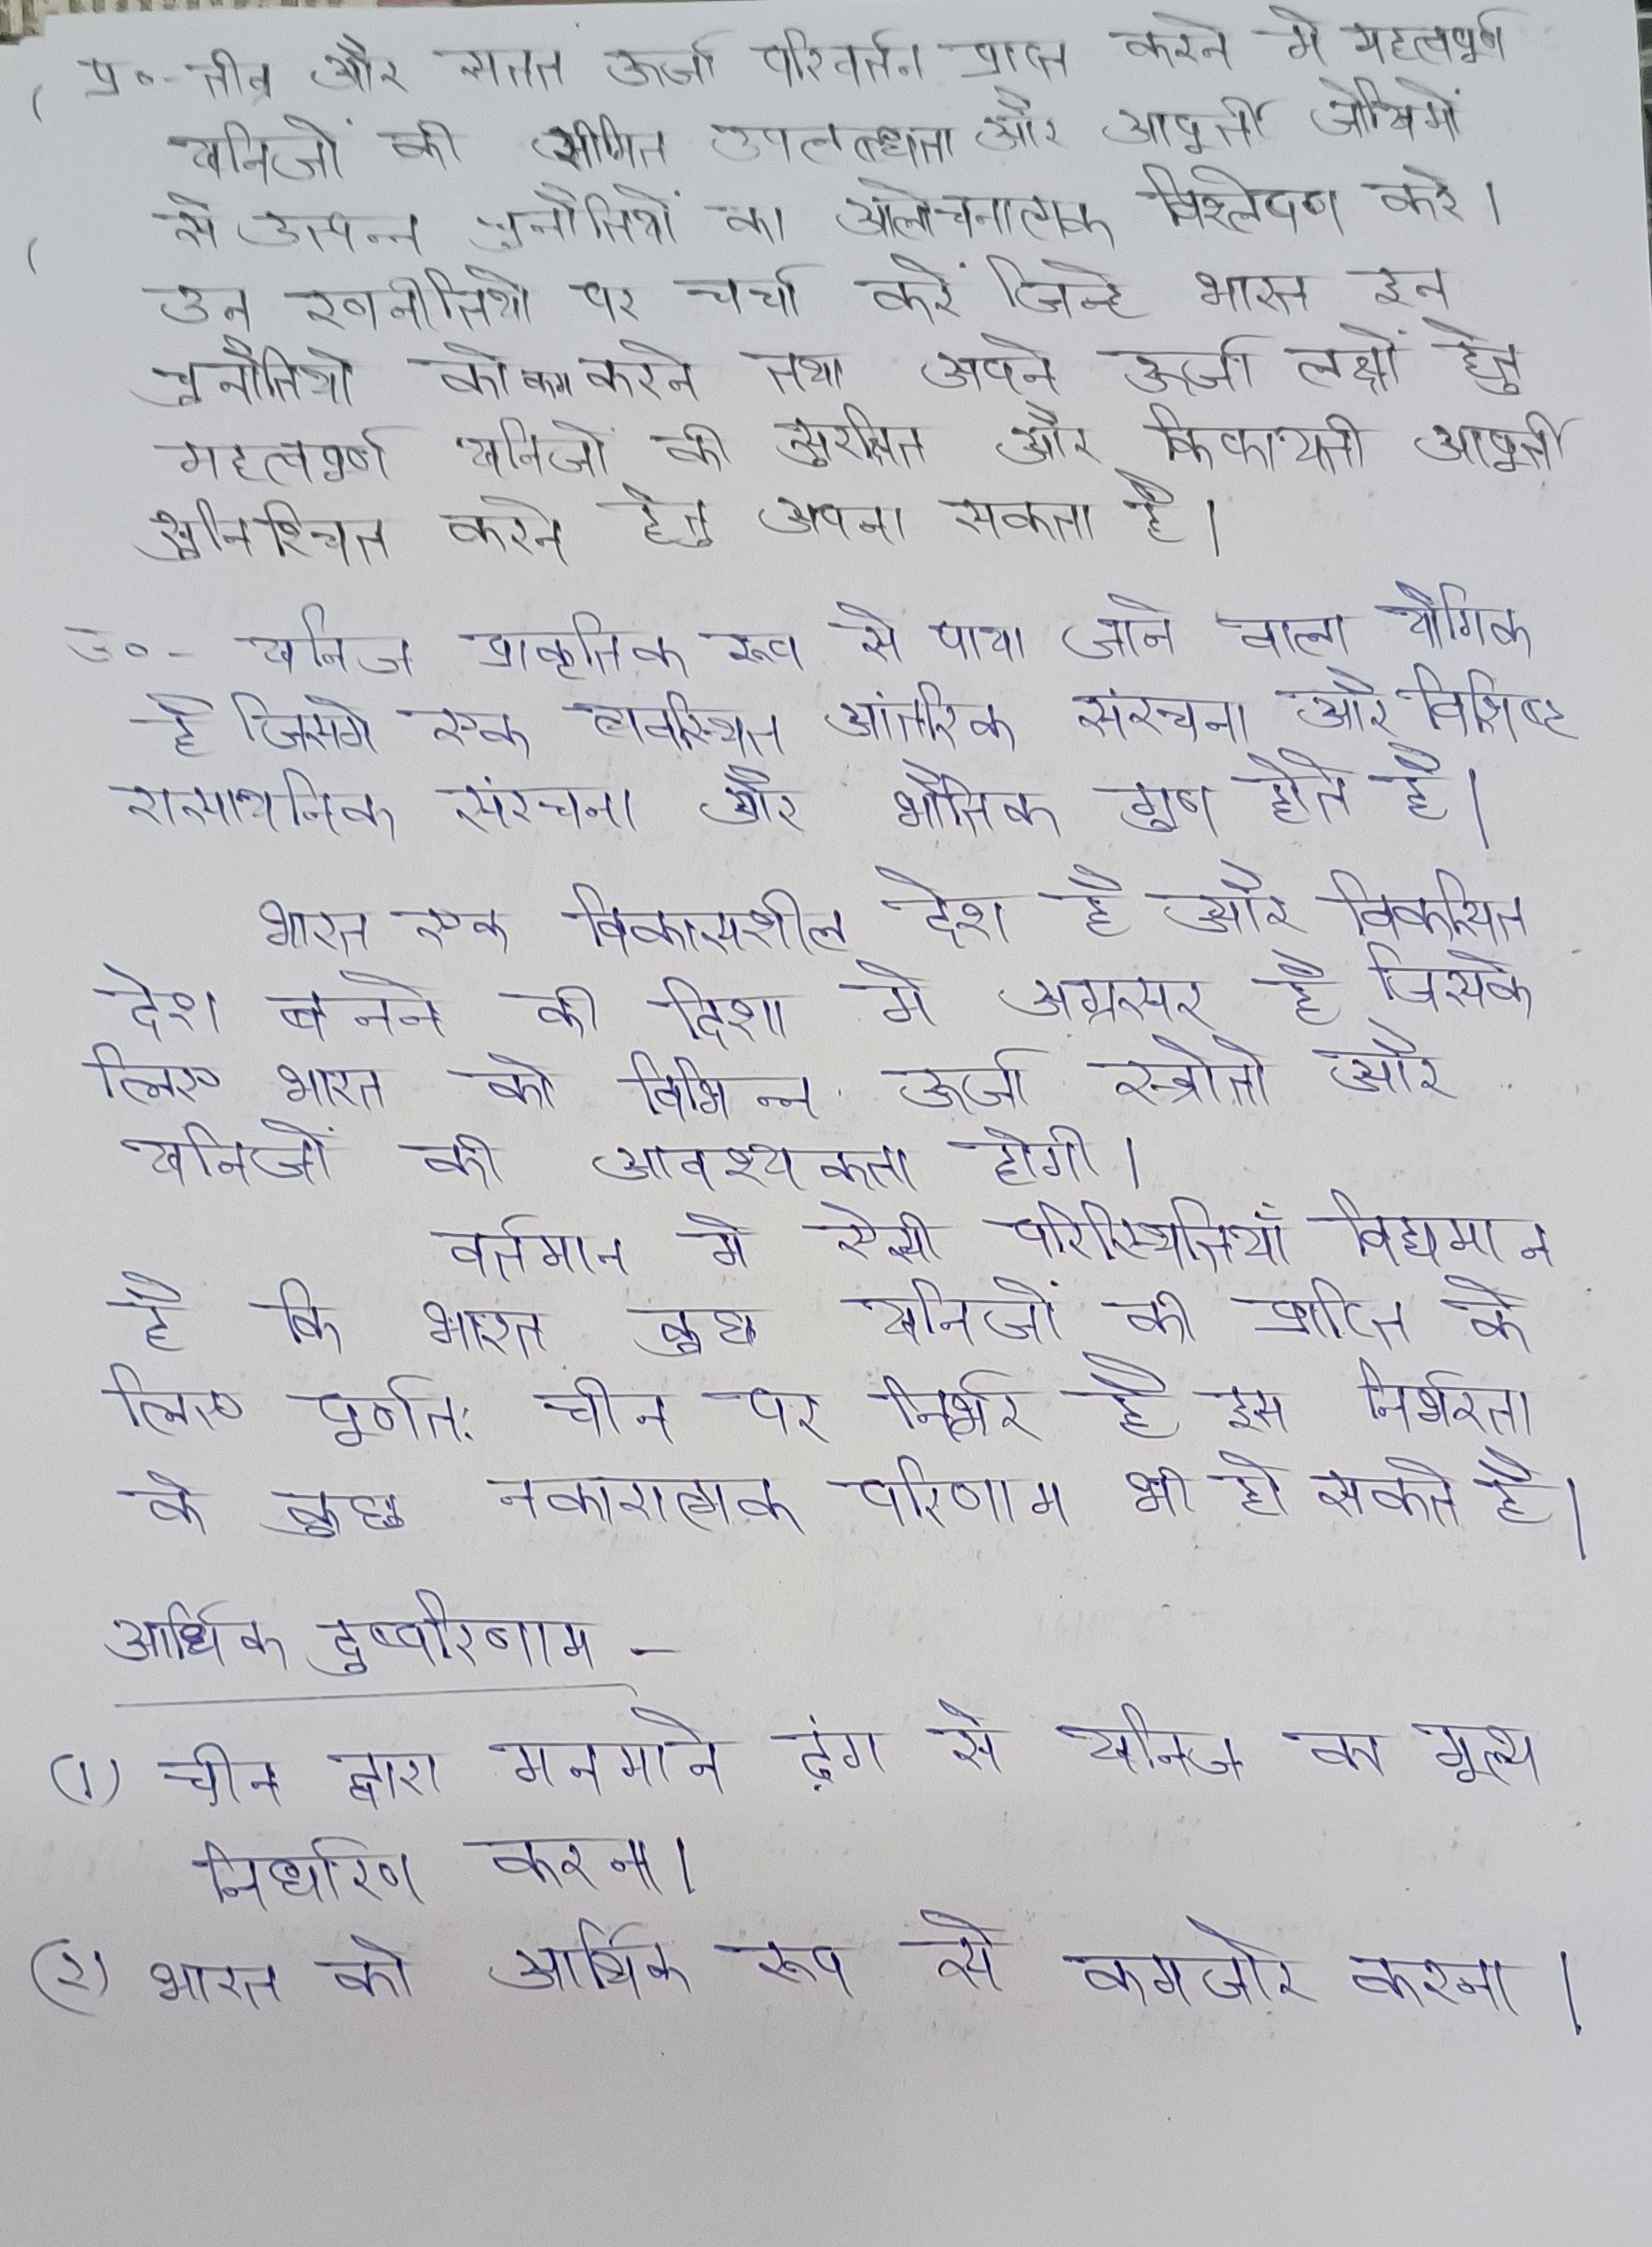 प्र०- तीव्र और सतत ऊर्जा परिवर्तन प्राप्त करने मे महत्वपूर्ण
खनिजों की सीमित उपलब्धता और आपूर्ती जोखिमों
से उत्पन्न चुनौतियों का आलोचनात्मक विश्लेषण करे।
उन रणनीतियो पर चर्चा करें जिन्हे भारत इन
चुनौतियो को कम करने तथा अपने ऊर्जा लक्षों हेतु
महत्वपूर्ण खनिजों की सुरक्षित और किफायती आपूर्ती
सुनिश्चित करने हेतु अपना सकता है।
उ०- खनिज प्राकृतिक रूप से पाया जाने वाला यौगिक
है जिसमे एक व्यवस्थित आंतरिक संरचना और विशिष्ट
रासायनिक संरचना और भौतिक गुण होते है।
भारत एक विकासशील देश है और विकसित
देश बनने की दिशा मे अग्रसर है जिसके
लिए भारत को विभिन्न ऊर्जा स्त्रोतो और
खनिजों की आवश्यकता होगी।
वर्तमान मे ऐसी परिस्थितियाँ विद्यमान
है कि भारत कुछ खनिजों की प्राप्ति के
लिए पूर्णत: चीन पर निर्भर है इस निर्भरता
के कुछ नकारात्मक परिणाम भी हो सकते है।
आर्थिक दुष्परिणाम -
(1) चीन द्वारा मनमाने ढ़ंग से खनिज का मूल्य
निर्धारण करना।
(2) भारत को आर्थिक रूप से कमजोर करना।